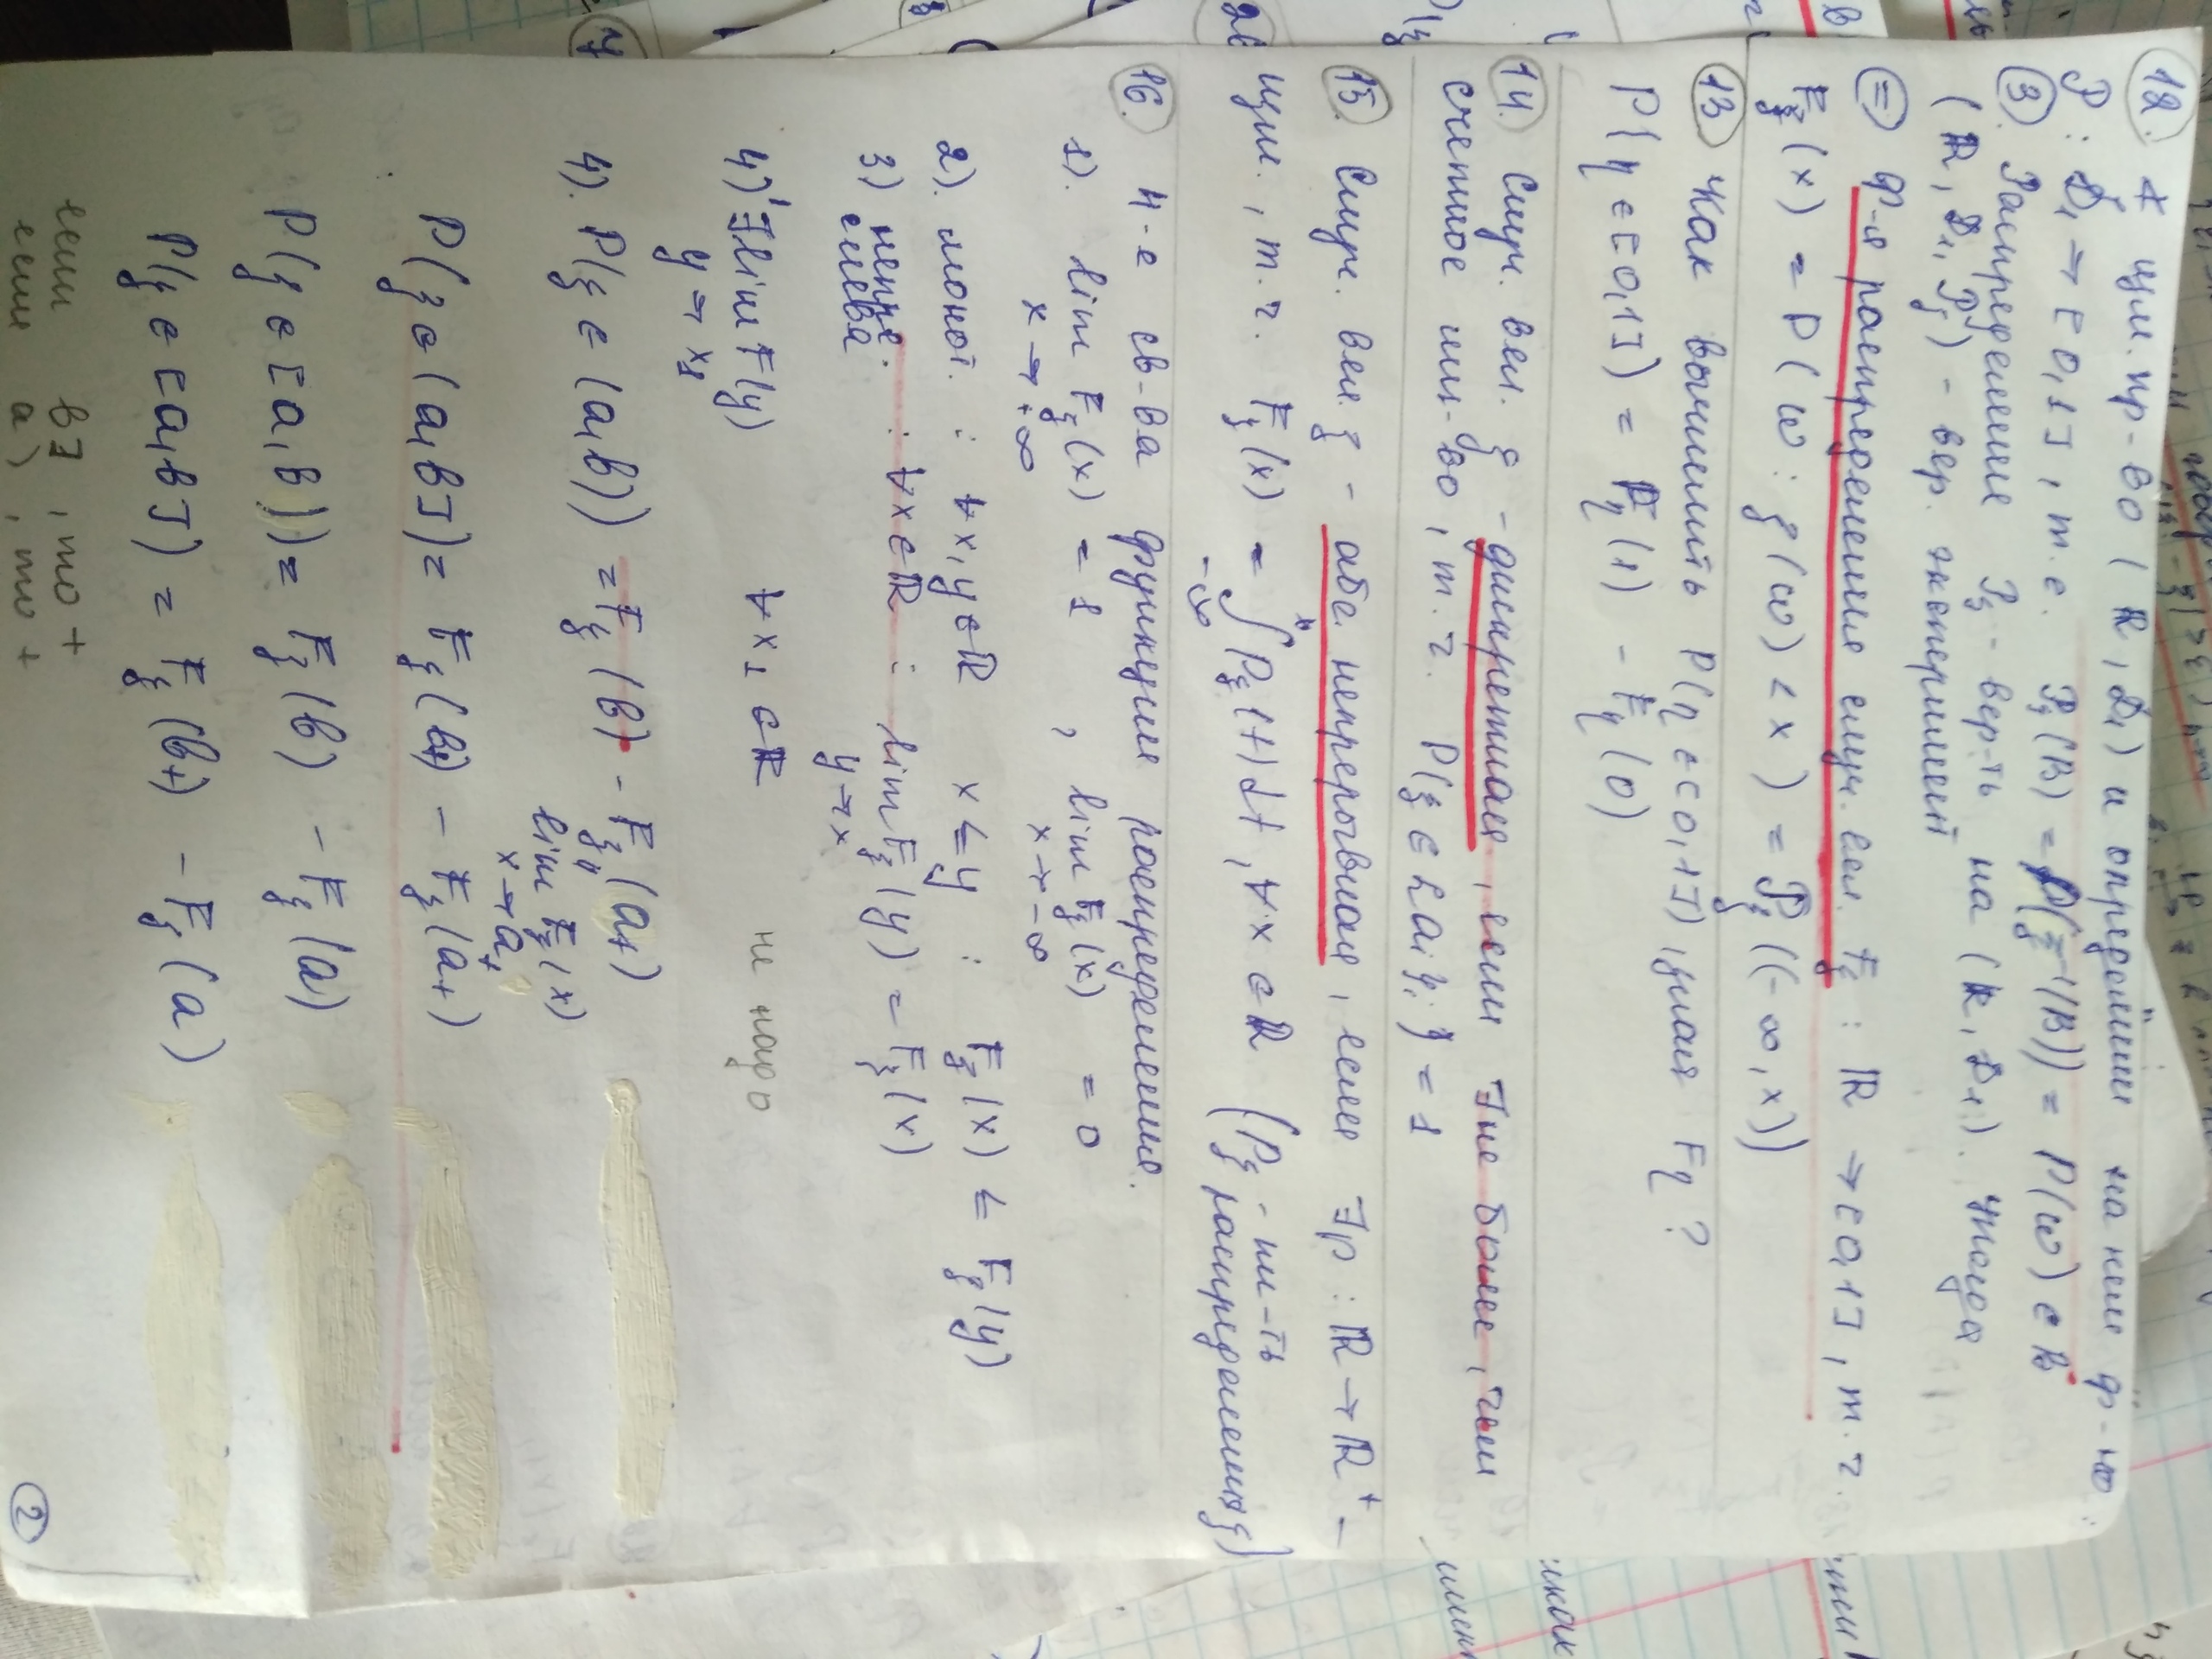 12. ∢ изм. пр-во (ℝ, 𝓑₁) и определим на нём ф-ю:
P : 𝓑₁ → [0,1], т.е. P_ξ(B) = P(ξ⁻¹(B)) = P(ω) ∈ B
③. Распределение P_ξ - вер-ть на (ℝ, 𝓑₁). Тогда
(ℝ, 𝓑₁, P_ξ) - вер. эксперимент
⊜ Ф-я распределения случ. вел. F_ξ : ℝ → [0,1], т.ч.
F_ξ(x) = P(ω : ξ(ω) < x) = P_ξ((-∞, x))
13 Как вычислить P(η ∈ [0,1]), зная F_η ?
P{η ∈ [0,1]) = F_η(1) - F_η(0)
14. Случ. вел. ξ - дискретная, если ∃ не более, чем
счетное мн-во, т.ч. P(ξ ∈ {a_i}_i) = 1
15. Случ. вел. ξ - абс. непрерывная, если ∃p : ℝ → ℝ⁺ -
изм., т.ч. F_ξ(x) = ∫_{-∞}^{x} p_ξ(t)dt, ∀x ∈ ℝ (p_ξ - пл-ть распределения ξ)
16. 4-е св-ва функции распределения.
1). lim F_ξ(x) = 1 , lim F_ξ(x) = 0
x → +∞ x → -∞
2). монот. : ∀x,y ∈ ℝ x ≤ y : F_ξ(x) ≤ F_ξ(y)
3) непре. : ∀x ∈ ℝ : lim F_ξ(y) = F_ξ(x)
слева y → x
4)' ∃ lim F(y) ∀x₁ ∈ ℝ не надо
y → x₁
4). P(ξ ∈ (a,b)) = F_ξ(b) - F_ξ(a+)
lim F_ξ(x)
x → a+
P(ξ ∈ (a,b]) = F_ξ(b+) - F_ξ(a+)
P(ξ ∈ [a,b)) = F_ξ(b) - F_ξ(a)
P(ξ ∈ [a,b]) = F_ξ(b+) - F_ξ(a)
если b] , то +
если a) , то +
2